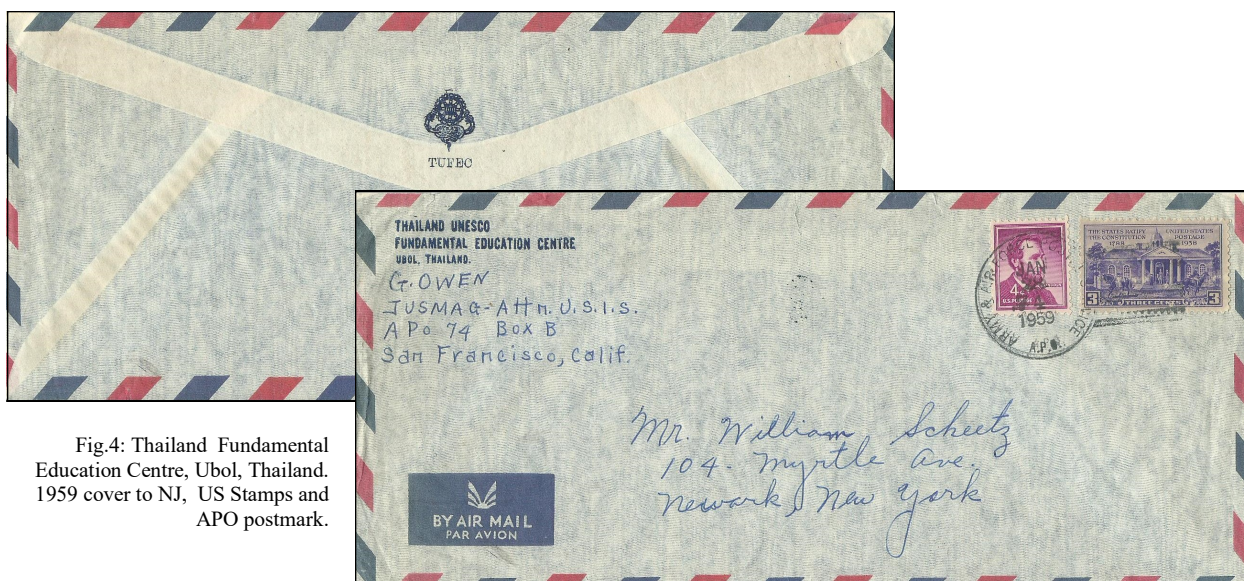 TUFEC
THAILAND UNESCO
FUNDAMENTAL EDUCATION CENTRE
UBOL, THAILAND.
G. OWEN
JUSMAG-Attn. U.S.I.S.
APo 74 Box B
San Francisco, Calif.
ARMY & AIR FORCE
JAN
1959
A.P.O.
4¢
U.S. POSTAGE
THE STATES RATIFY THE CONSTITUTION 1788
UNITED STATES POSTAGE 1938
3 THREE CENTS 3
Mr. William Scheetz
104- Myrtle Ave.
Newark, New York
BY AIR MAIL
PAR AVION
Fig.4: Thailand Fundamental
Education Centre, Ubol, Thailand.
1959 cover to NJ, US Stamps and
APO postmark.